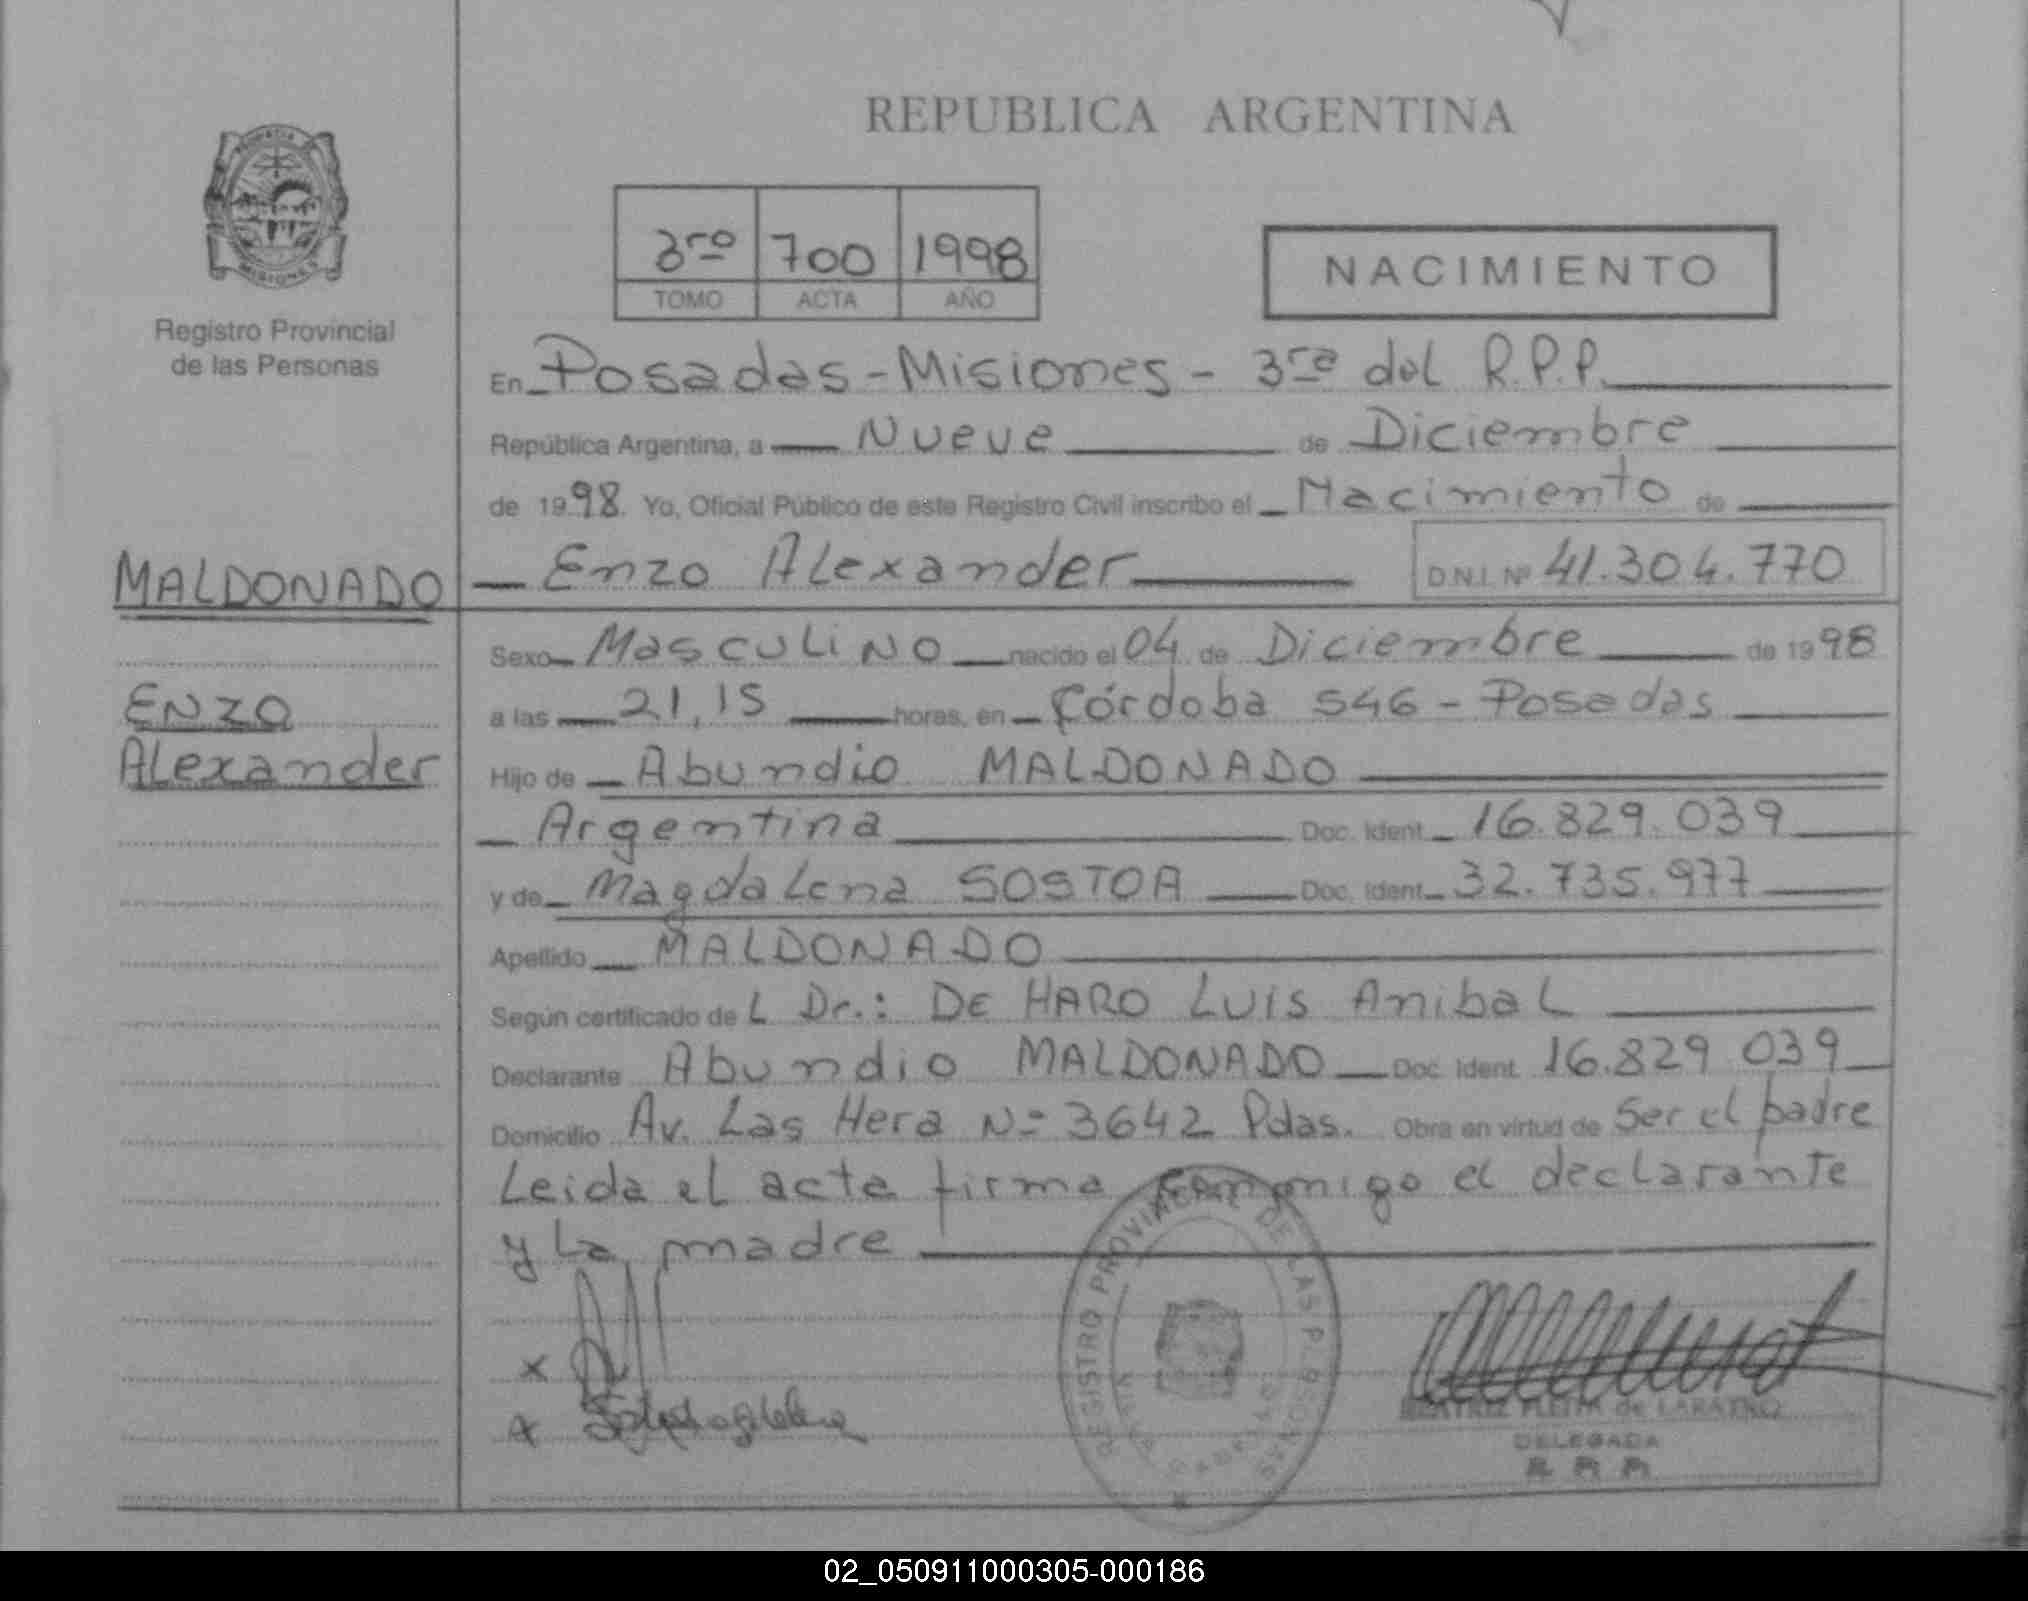 REPUBLICA ARGENTINA
MISIONES
Registro Provincial
de las Personas
3ro 700 1998
TOMO ACTA AÑO
NACIMIENTO
En Posadas - Misiones - 3ra del R.P.P.
República Argentina, a Nueve de Diciembre
de 1998. Yo, Oficial Público de este Registro Civil inscribo el Nacimiento de
MALDONADO
Enzo Alexander D.N.I. Nº 41.304.770
Sexo Masculino nacido el 04 de Diciembre de 1998
ENZO
Alexander
a las 21,15 horas, en Córdoba 546 - Posadas
Hijo de Abundio MALDONADO
Argentina Doc. Ident. 16.829.039
y de Magdalena SOSTOA Doc. Ident. 32.735.977
Apellido MALDONADO
Según certificado del Dr.: DE HARO LUIS Anibal
Declarante Abundio MALDONADO Doc. Ident. 16.829 039
Domicilio Av. Las Hera Nº 3642 Pdas. Obra en virtud de Ser el padre
Leida el acta firma conmigo el declarante
y la madre
REGISTRO PROVINCIAL DE LAS PERSONAS
x
x
BEATRIZ de
DELEGADA
02_050911000305-000186